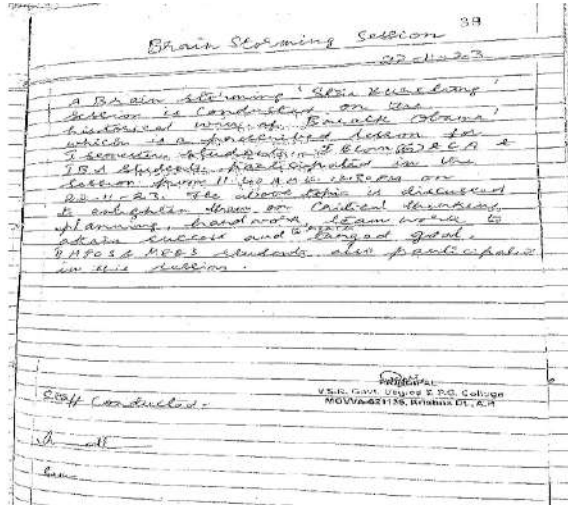 39
Brain Storming Session
22-11-23
A Brain storming
session is conducted on the
historical way of Barack Obama'
which is a prescribed lesson for
I semester students. I BCom (G) & CA &
students participated in the
session from 11:40 AM to 12:30 PM on
22-11-23. The above topic is discussed
to enlighten them on Critical thinking,
planning, hard work, team work to
attain success and goal.
students also participated
in this session.
PRINCIPAL
V.S.R. Govt. Degree & P.G. College
MOVVA-521135, Krishna Dt., A.P.
Staff Conducted -